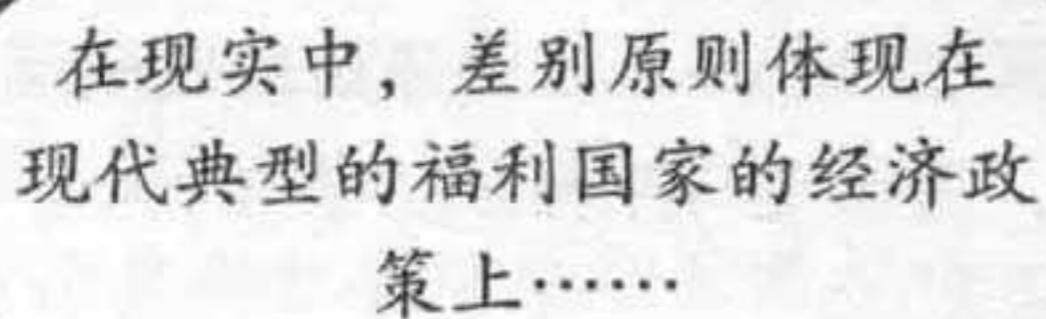 在现实中，差别原则体现在
现代典型的福利国家的经济政
策上……